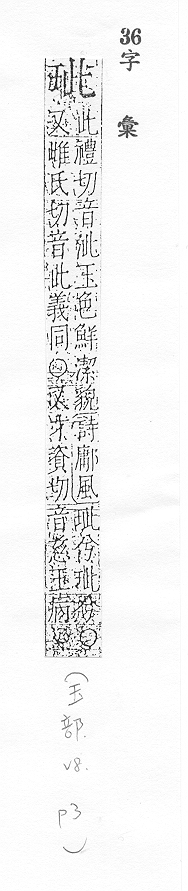 36
字彙
玼
此禮切音泚玉色鮮潔貌詩鄘風玼兮玼兮○
又雌氏切音此義同○又才資切音慈玉病○
(玉部. v8. p3)